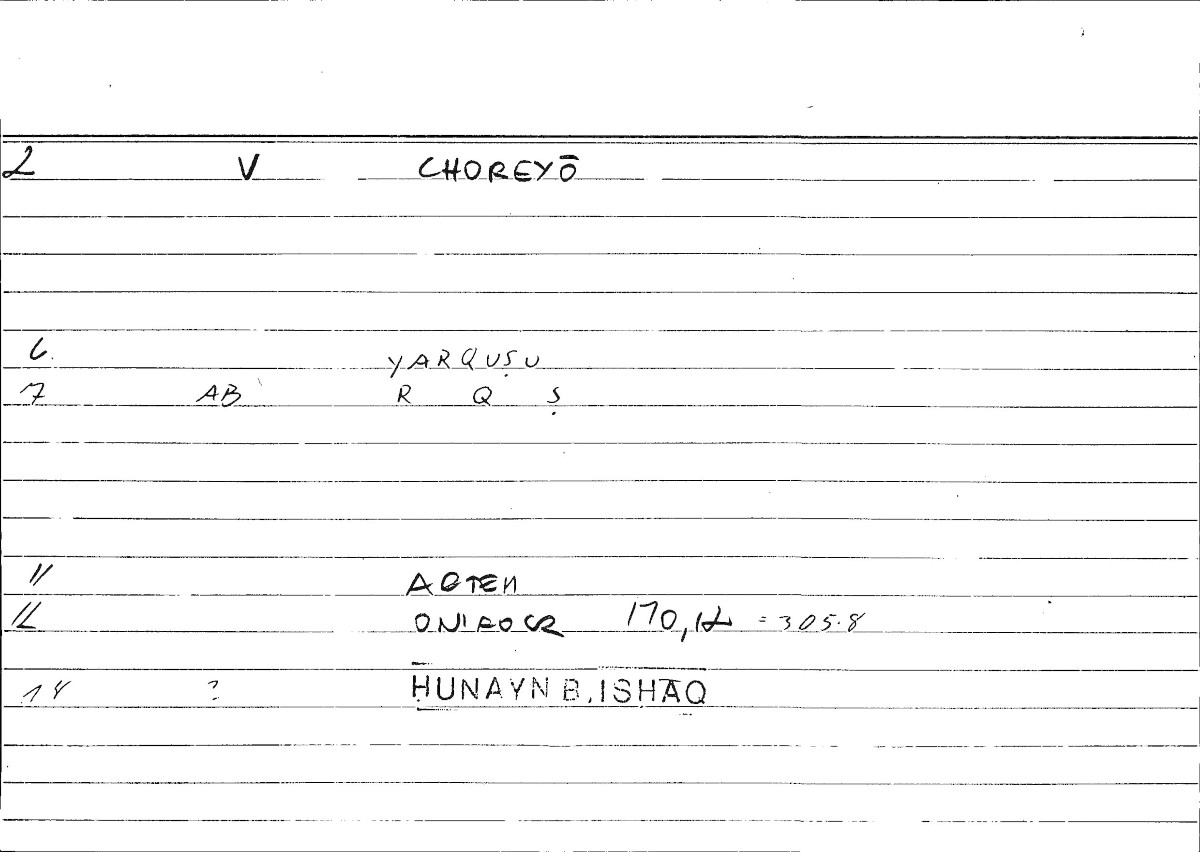 2 V CHOREYŌ
6. YARQUṢU
7 AB R Q Ṣ
11 ARTEM
12 ONIROCR 170,12 = 305.8
14 ? ḤUNAYN B. ISḤĀQ